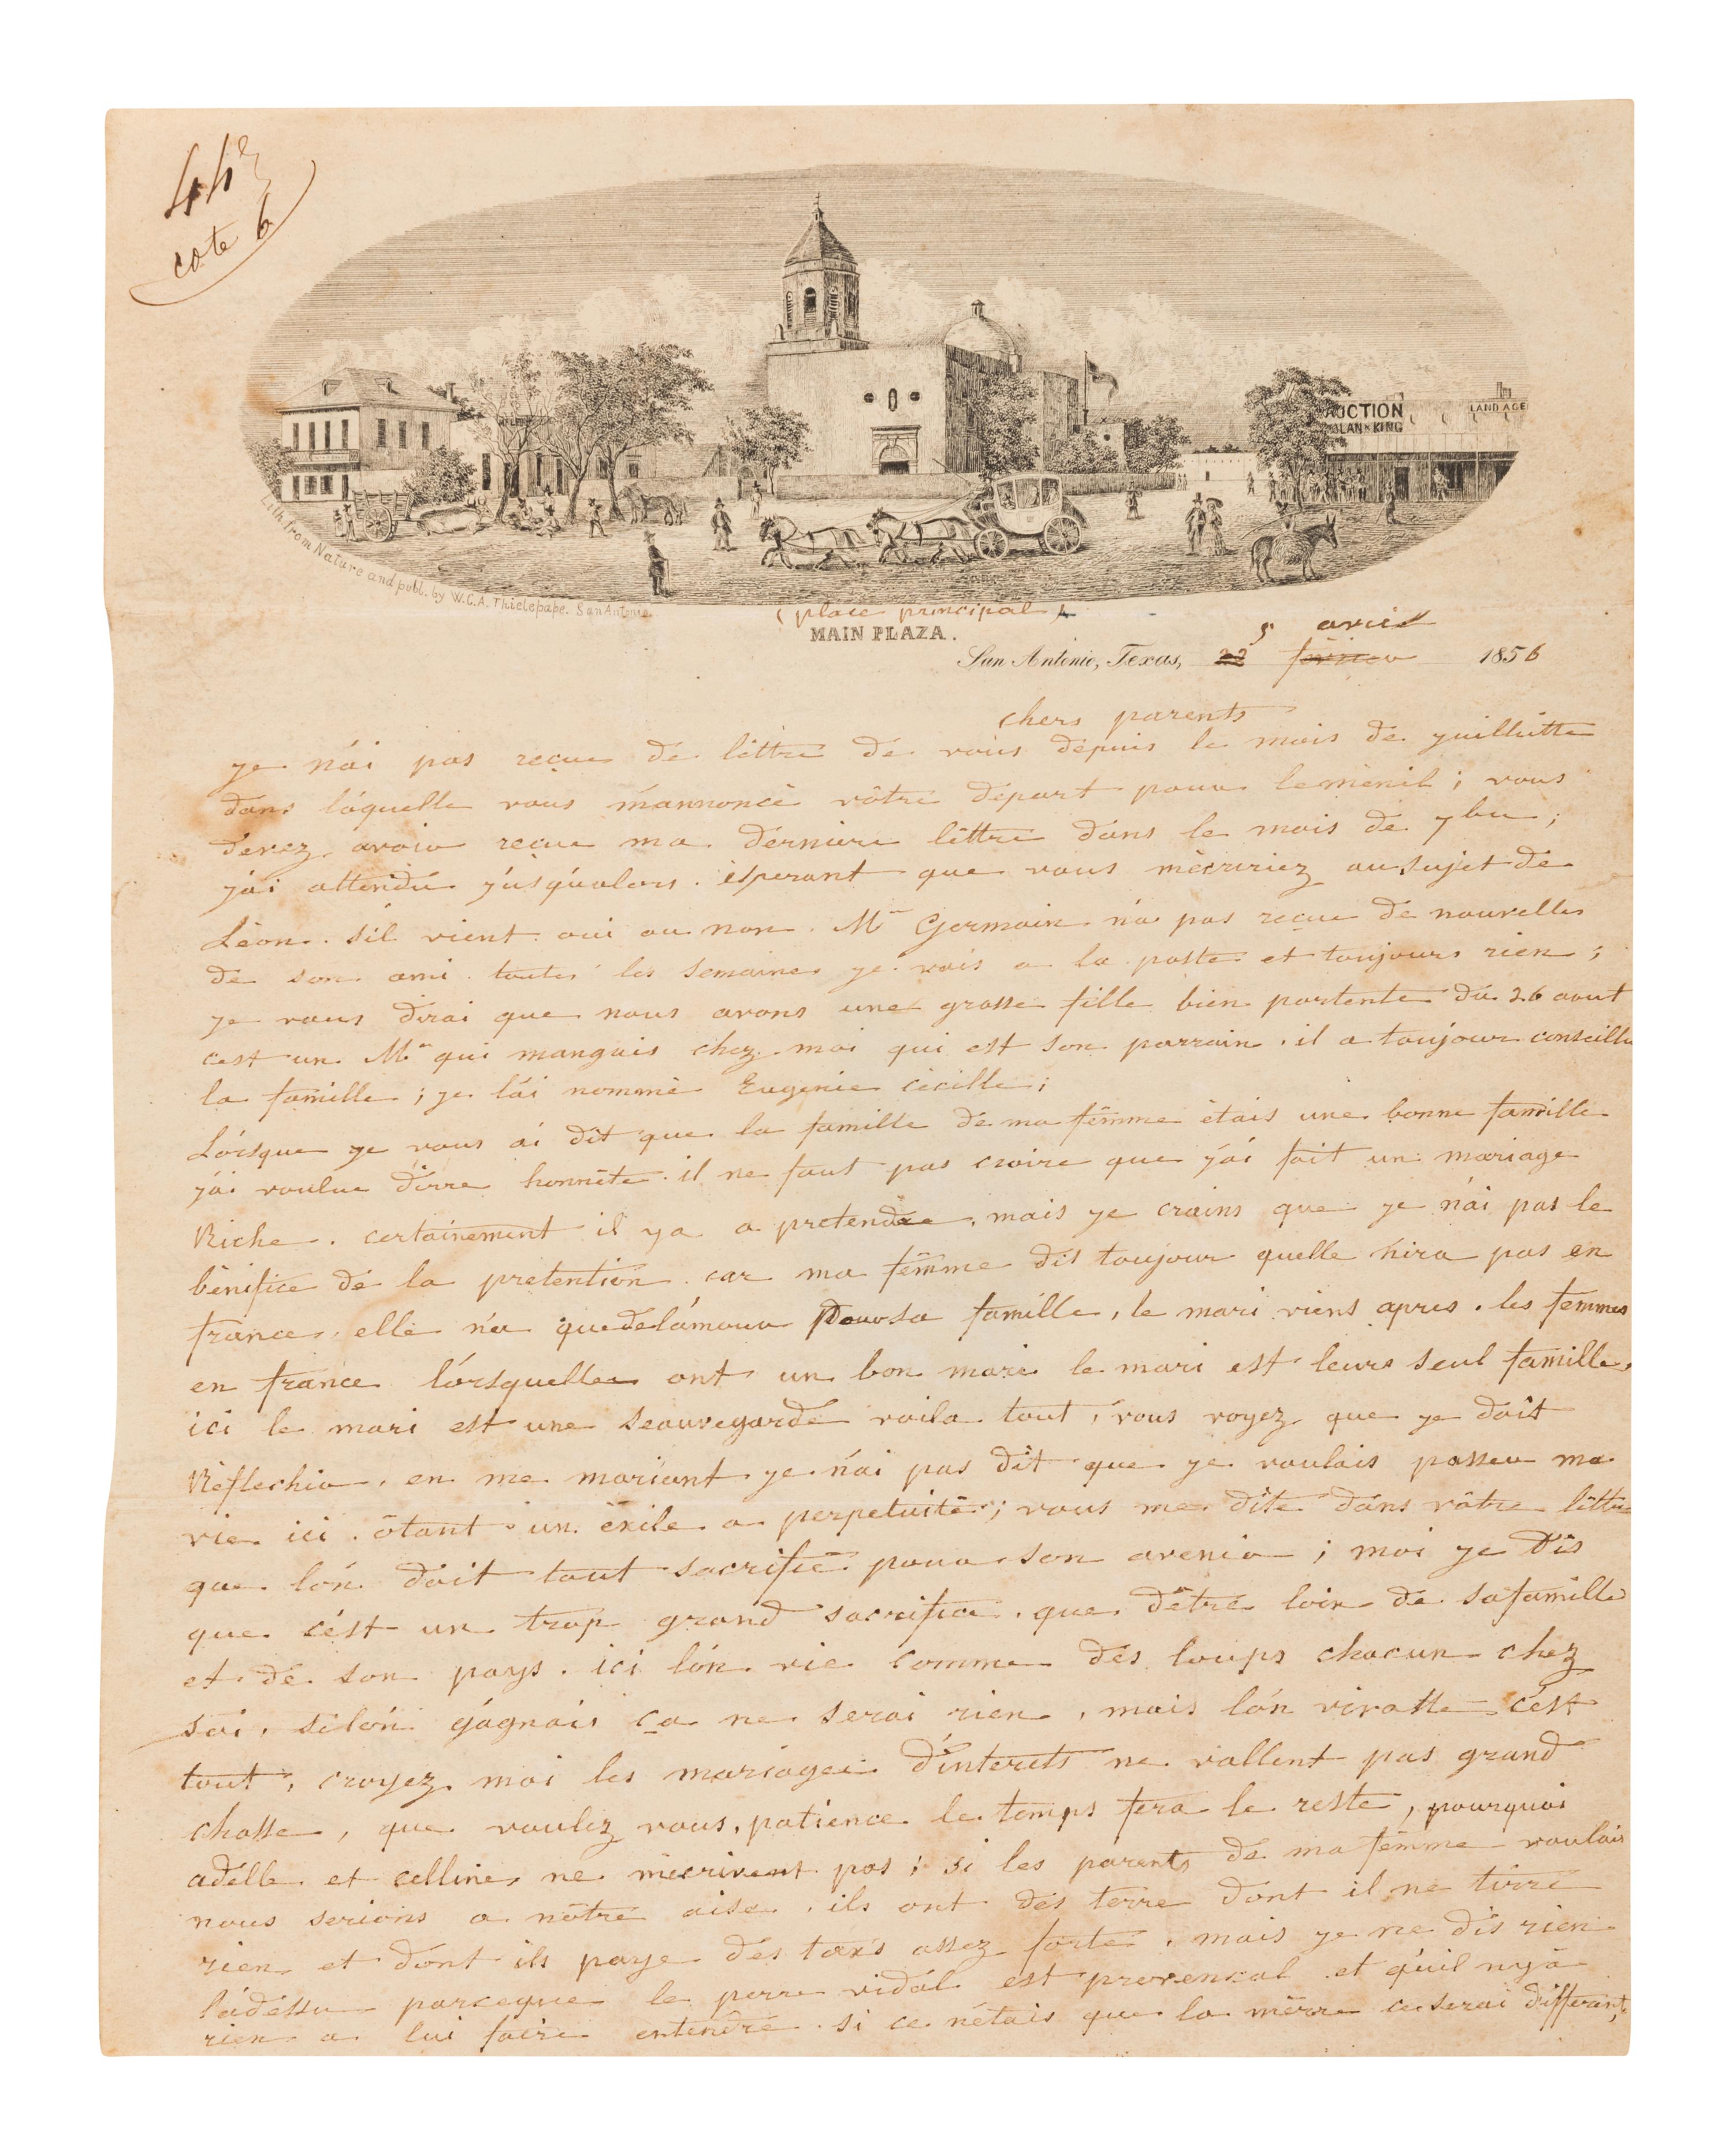 44e
cote 6
AUCTION
LAND AGE
ALAN & KING
Lith. from Nature and publ. by W.C.A. Thielepape. San Antonio.
( place principal )
MAIN PLAZA.
5 avril
San Antonio, Texas, 22 fevrier 1856
chers parents
ye n'ai pas reçue de lettre de vous depuis le mois de yuillitte
dans laquelle vous m'annoncé vôtre départ pour leménil ; vous
devez avoir reçue ma derniere lettre dans le mois de 7bre ;
y'ai attendu yusqualors . esperant que vous mecririez au sujet de
Léon . s'il vient oui ou non . Mr Germain n'a pas reçue de nouvelles
de son ami . toutes les semaines ye vais a la poste et toujours rien ;
ye vous dirai que nous avons une grosse fille bien portente du 26 aout
cest un Mr qui mangais chez moi qui est son parrain . il a toujour conseillé
la famille ; ye l'ai nommé Eugenie cécille ;
Lorsque ye vous ai dit que la famille de ma femme étais une bonne famille
y'ai voulue dirre honnéte . il ne faut pas croire que y'ai fait un mariage
Riche . certainement il ya a pretendre , mais ye crains que ye n'ai pas le
bénifice de la pretention . car ma femme dis toujour quelle n'ira pas en
france , elle n'a que de lámour Pour sa famille , le mari viens apres . les femmes
en france lórsquelles ont un bon mari le mari est leurs seul famille ,
ici le mari est une seauvegarde voila tout , vous voyez que ye doit
Réflechir , en me mariant ye n'ai pas dit que ye voulais passer ma
vie ici . ôtant un éxile a perpetuité ; vous me dite dans vôtre lettre
que lón doit tout sacrifié pour son avenir ; moi ye Dis
que cést un trop grand sacrifice . que d'être loin de sa famille
et de son pays . ici lón vie comme des loups chacun chez
soi , silón gágnais ça ne serai rien , mais lón vivotte cést
tout , croyez moi les mariages d'interets ne vallent pas grand
chosse , que voulez vous , patience le temps fera le reste , pourquoi
adelle et celline ne mécrivent pas ; si les parents de ma femme voulais
nous serions a nôtre aise , ils ont des terre dont il ne tirre
rien et dont ils paye des taxs assez forte , mais ye ne dis rien
ládessu parceque le perre vidál est provencal et qúil nyà
rien a lui faire entendre . si ce nétais que la mérre ce serai differant ,